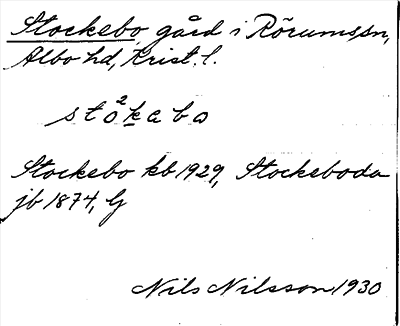 Stockebo, gård i Rörumssn,
Albo hd, Krist. l.
sto²kabo
Stockebo kb 1929, Stockeboda
jb 1874, G
Nils Nilsson 1930